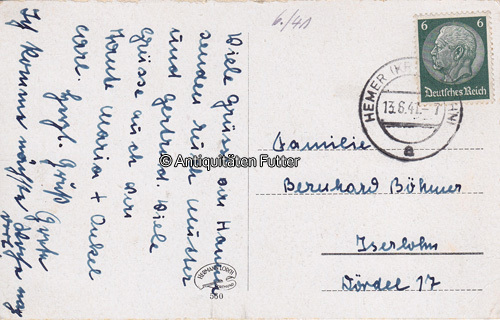 6./41
Viele Grüsse aus Hemer
senden euch Mutter
und Gertrud. Viele
Grüsse auch von
Tante Maria + Onkel
Carl. Herzl. Gruß
Ich komme nächste
6
Deutsches Reich
HEMER (KR. ISERLOHN)
13.6.41.- 7
a
Familie
Bernhard Böhmer
Iserlohn
Dördel 17
550
© Antiquitäten Futter